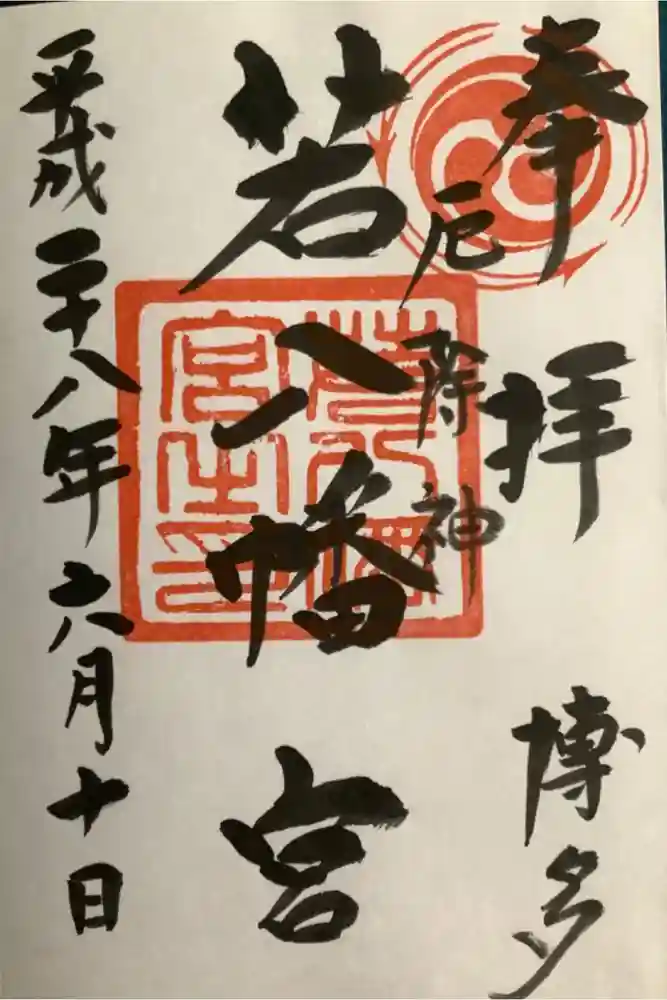 奉拝
博多
厄除神
若八幡宮
若八幡宮之印
平成二十八年六月十日